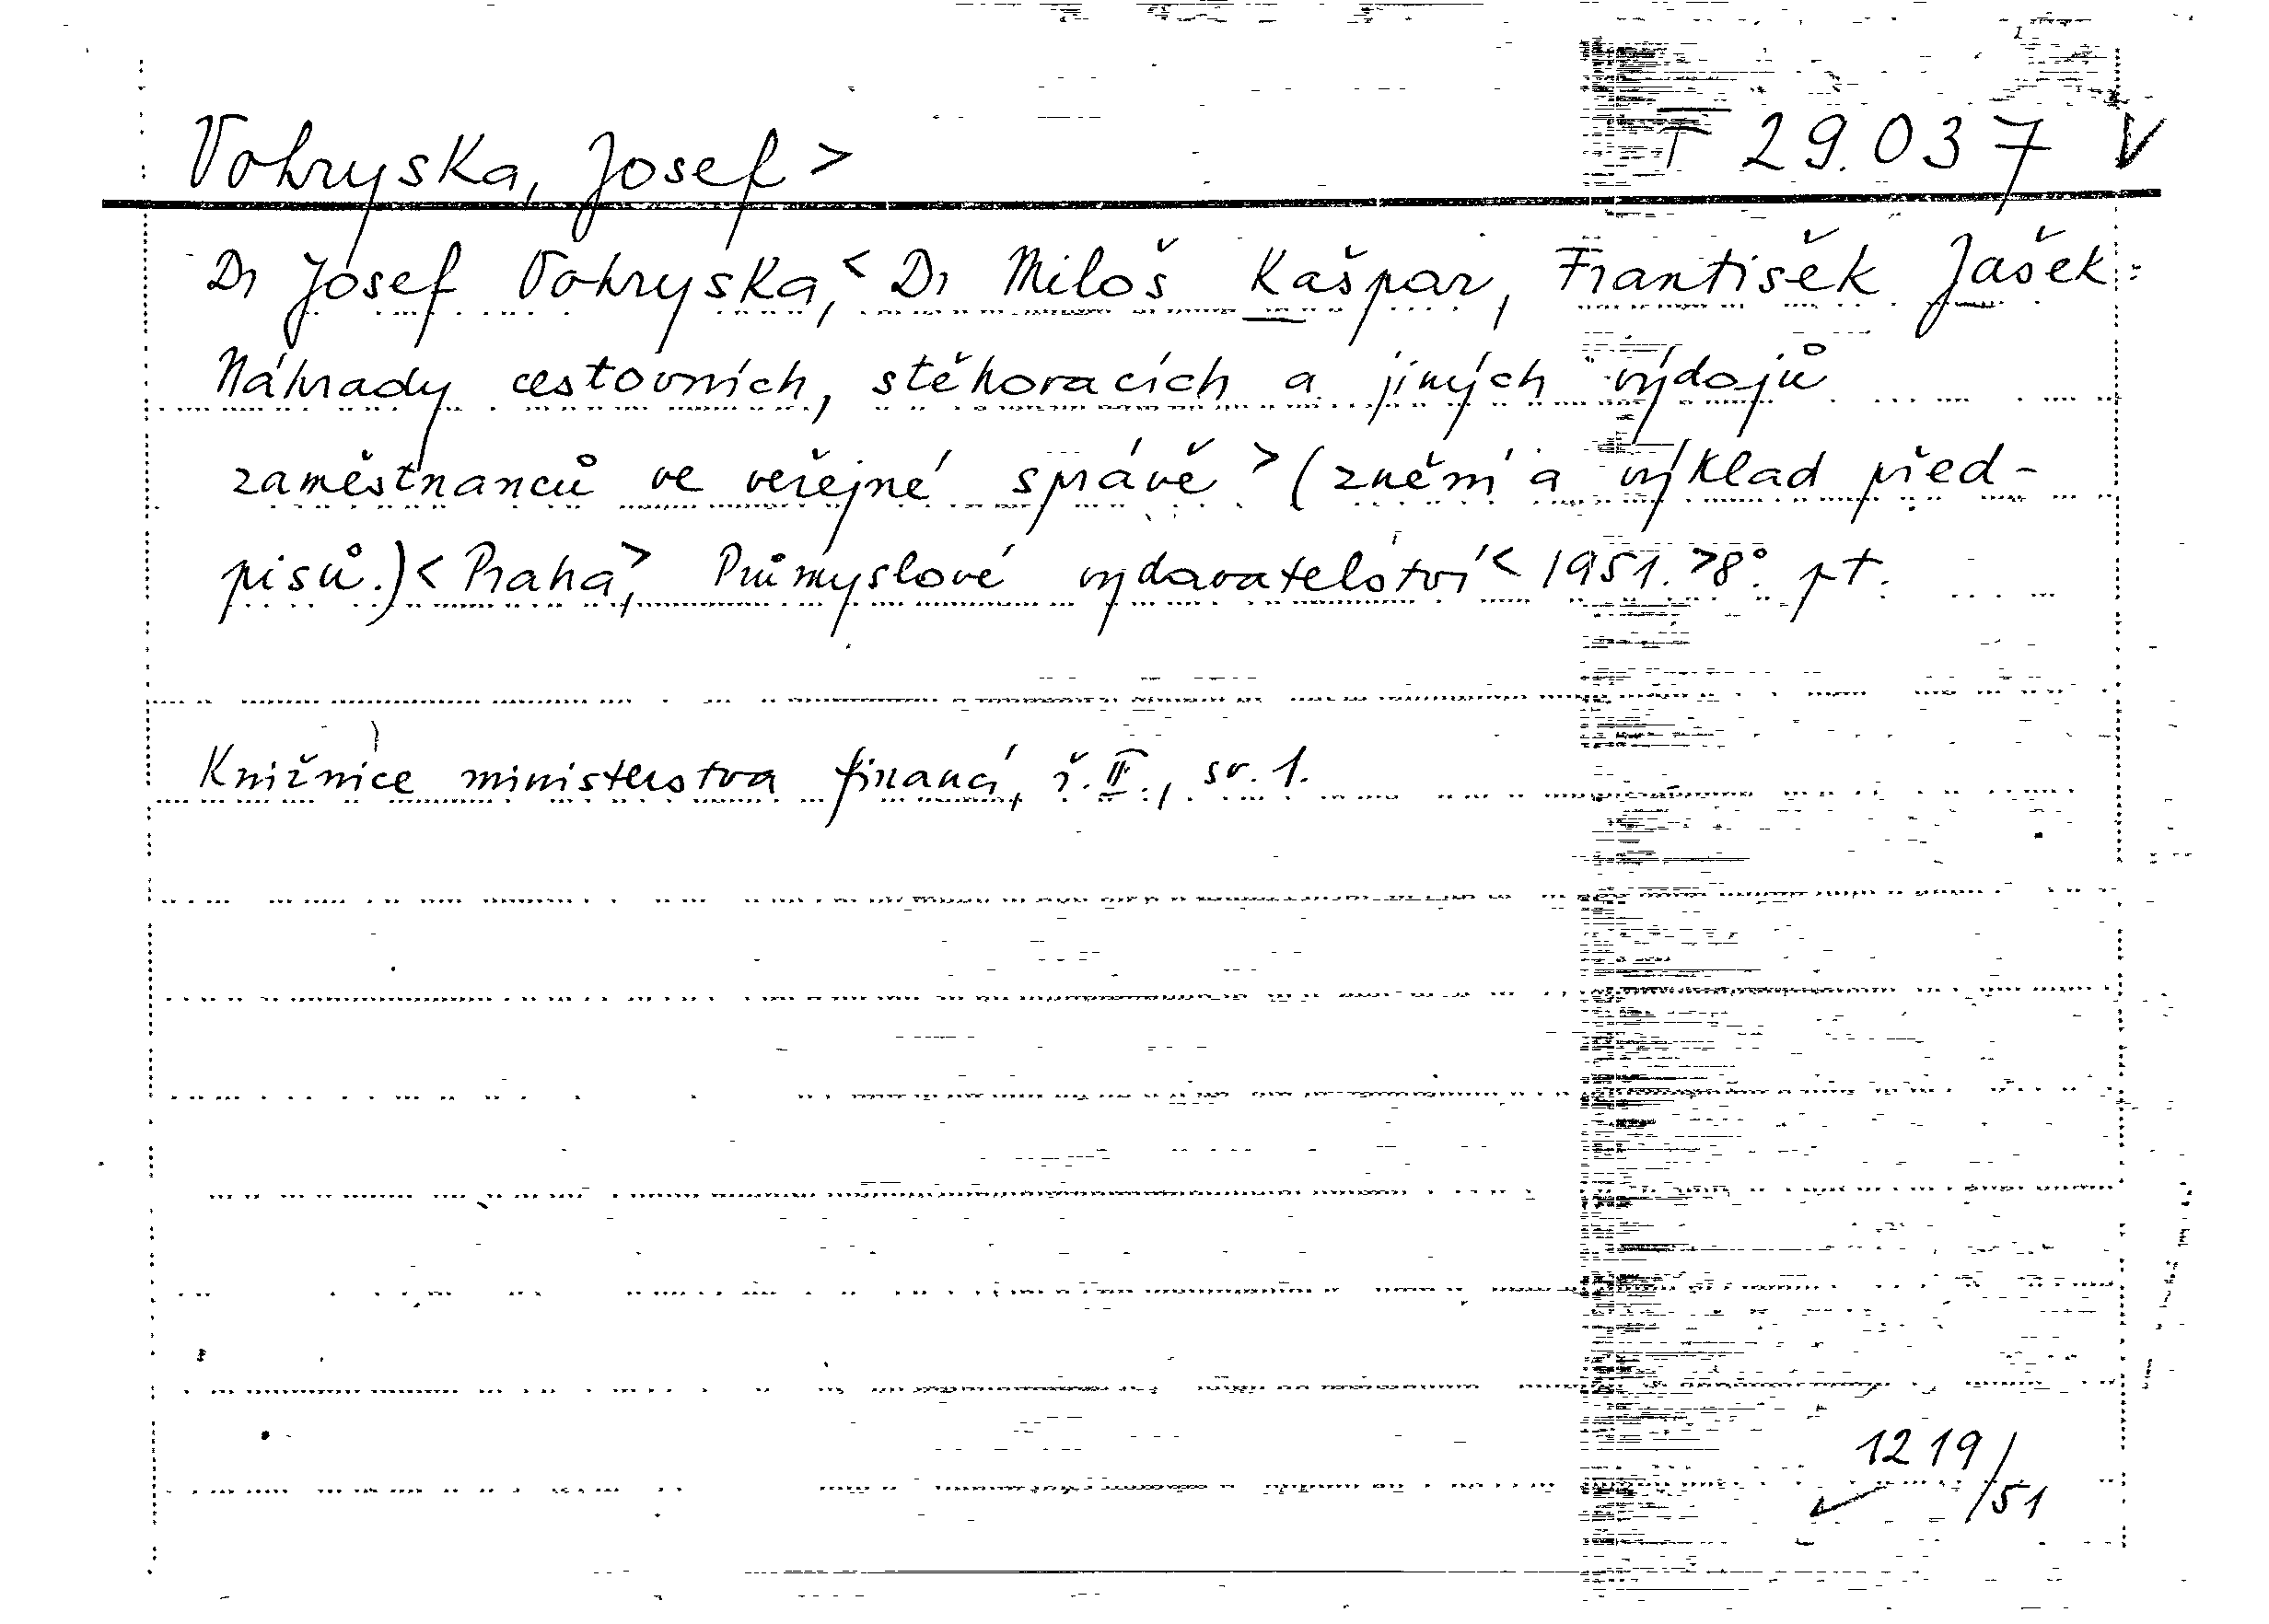 Vohryska, Josef > T 29.037 V
Dr Josef Vohryska,< Dr Miloš Kašpar, František Jašek:
Náhrady cestovních, stěhovacích a jiných výdajů
zaměstnanců ve veřejné správě > (znění a výklad před-
pisů.) < Praha,> Průmyslové vydavatelství < 1951. > 8°. pt.
Knižnice ministerstva financí, ř. II., sv. 1.
1219/51